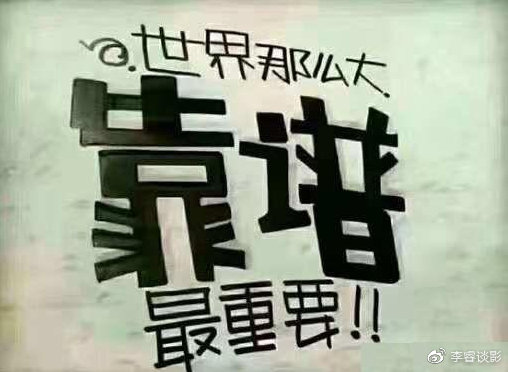 世界那么大.
靠谱
最重要!!
李睿谈影